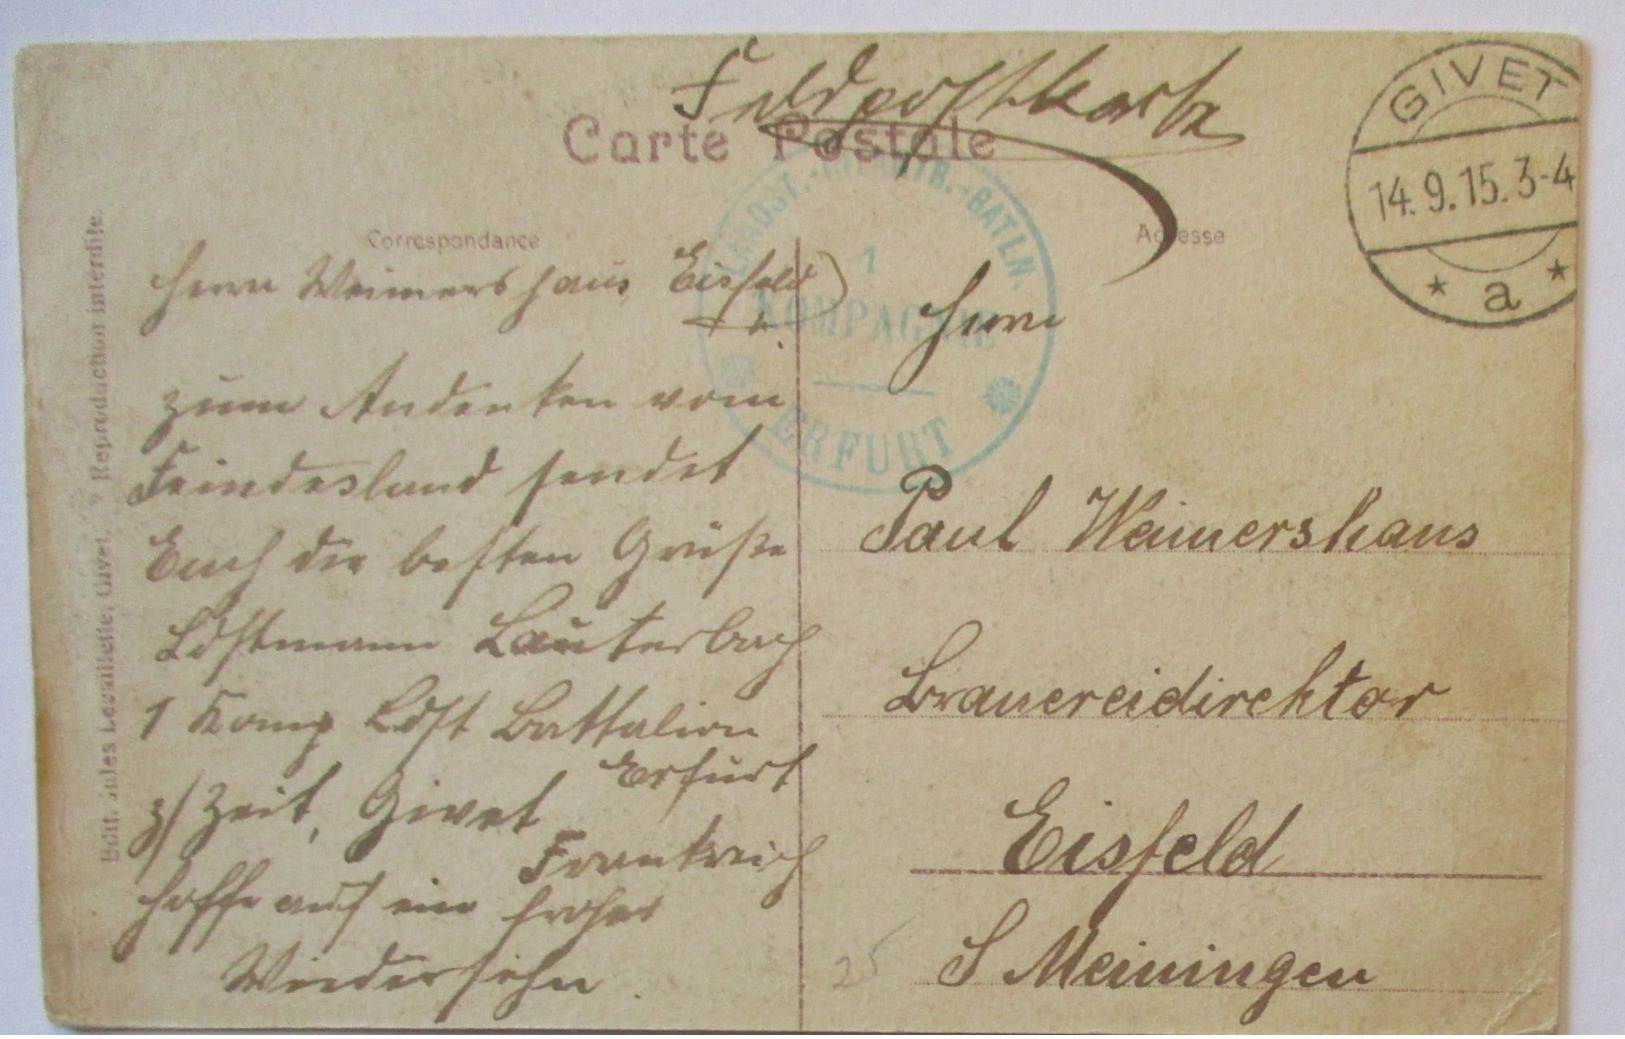 Feldpostkarte
Carte Postale
GIVET
14.9.15.3-4
* a *
Correspondance
Adresse
LANDST.-INFNTR.-BATLN.
1
KOMPAGNIE
ERFURT
Herrn Weimershaus Eisfeld
zum Andenken vom
Feindesland sendet
Euch die besten Grüße
Ldstmann Lauterbach
1 Komp Ldst Battalion
Erfurt
z/ Zeit, Givet
Frankreich
hoffe auf ein frohes
Wiedersehn.
Herrn
Paul Weimershaus
Brauereidirektor
Eisfeld
S Meiningen
25
Edit. Jules Lecaillette, Givet. Reproduction interdite.